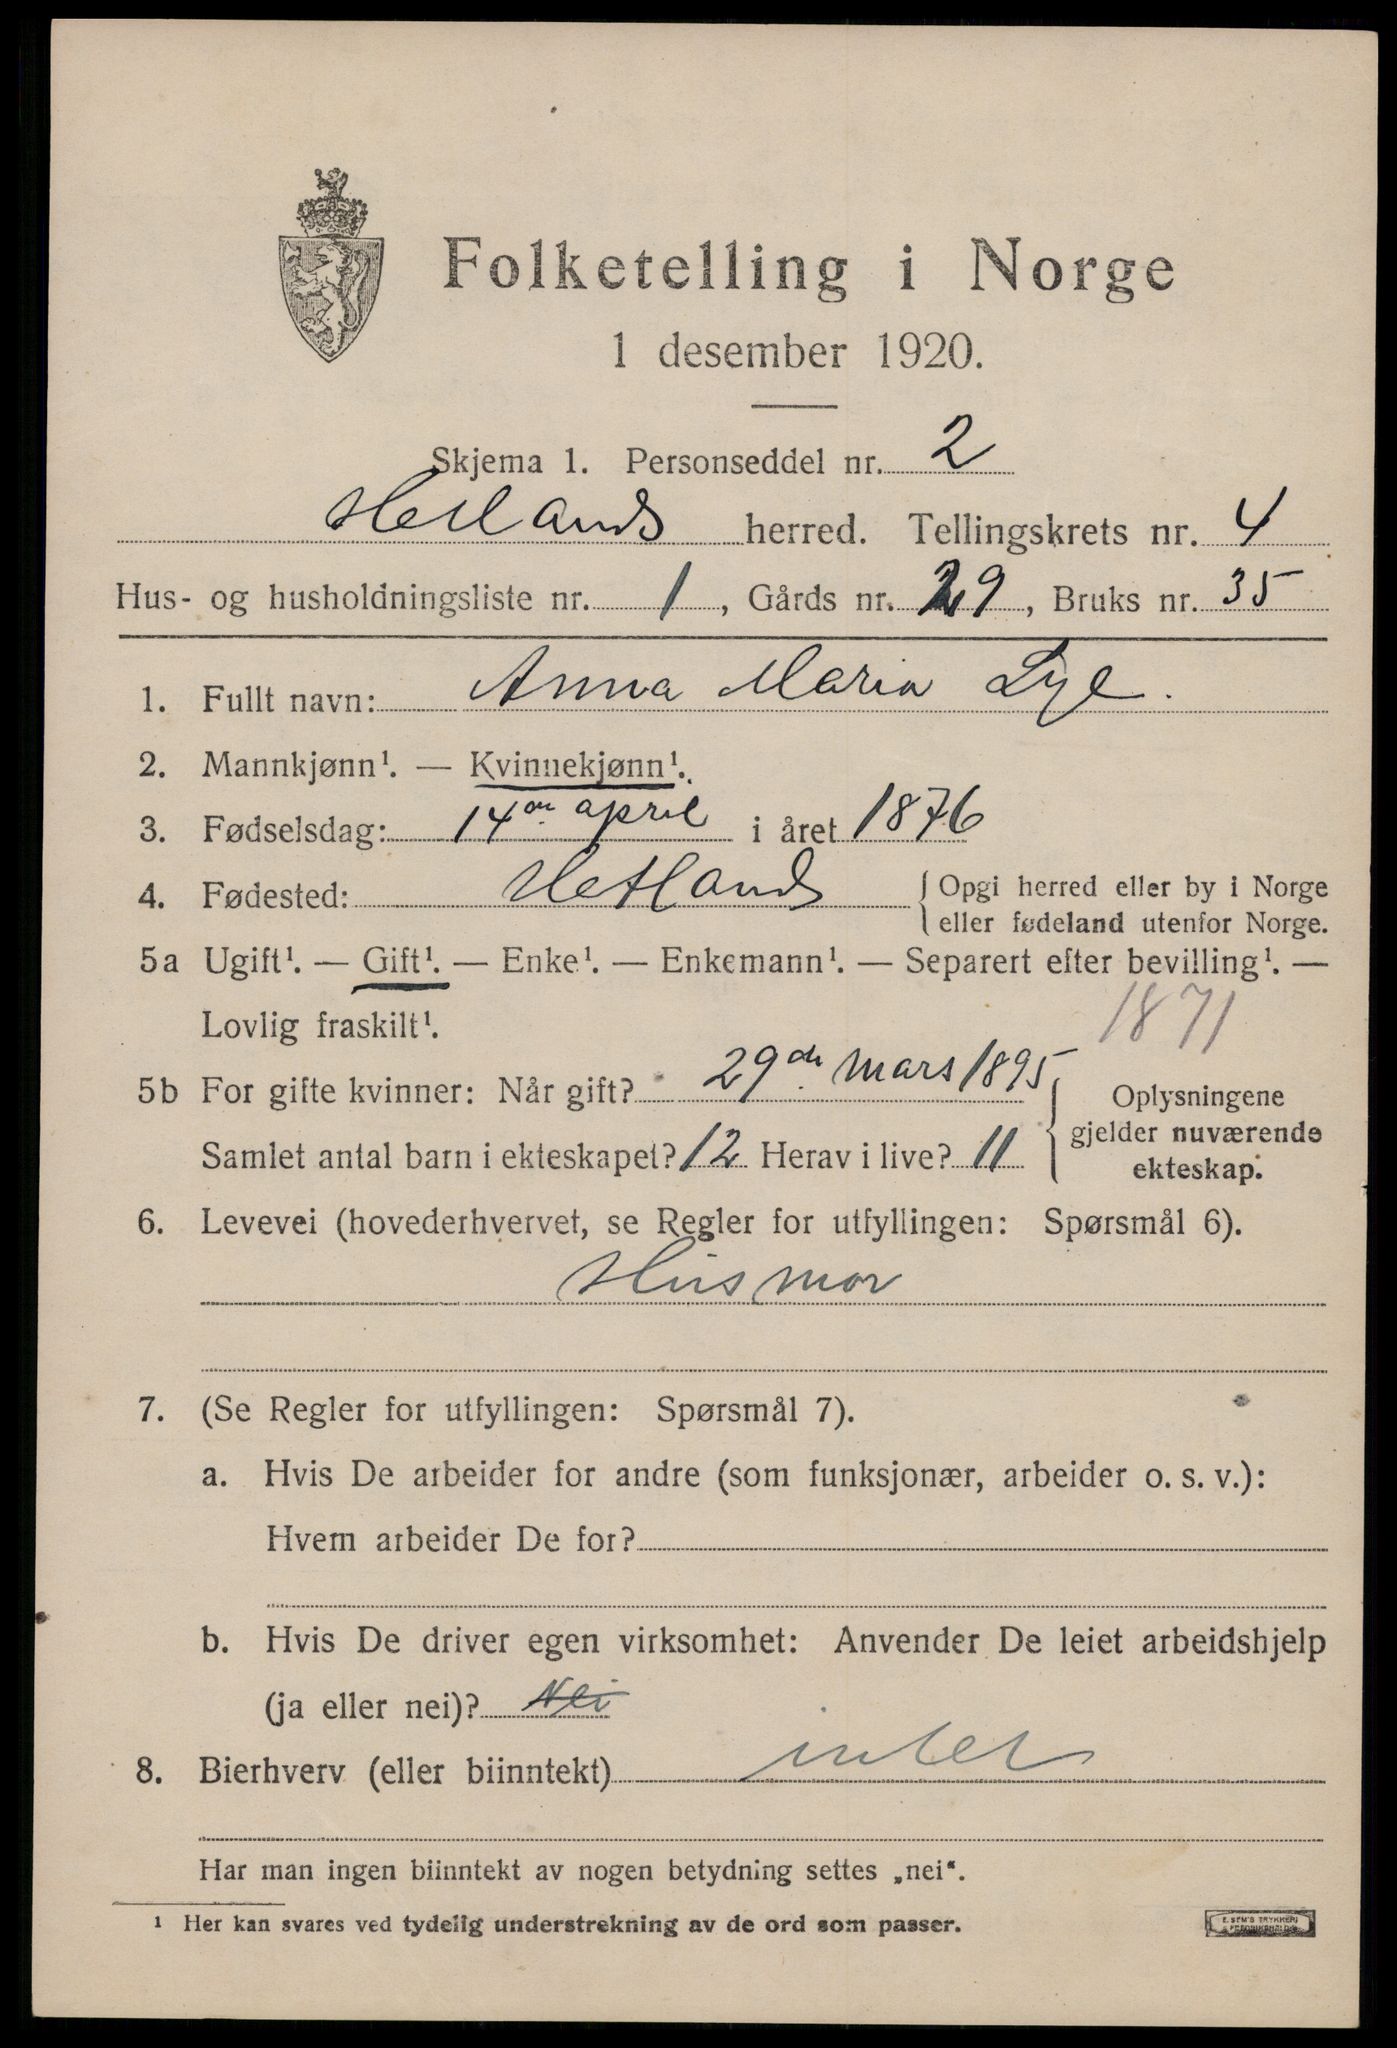 Folketelling i Norge
1 desember 1920.
Skjema 1. Personseddel nr. 2
Hetlands herred. Tellingskrets nr. 4
Hus- og husholdningsliste nr. 1, Gårds nr. 29, Bruks nr. 35
1. Fullt navn: Anna Maria Lye.
2. Mannkjønn¹. — Kvinnekjønn¹.
3. Fødselsdag: 14de april i året 1876
4. Fødested: Hetlands { Opgi herred eller by i Norge
eller fødeland utenfor Norge.
5a Ugift¹. — Gift¹. — Enke¹. — Enkemann¹. — Separert efter bevilling¹. —
Lovlig fraskilt¹. 1871
5b For gifte kvinner: Når gift? 29de mars 1895
Samlet antal barn i ekteskapet? 12 Herav i live? 11
Oplysningene
gjelder nuværende
ekteskap.
6. Levevei (hovederhvervet, se Regler for utfyllingen: Spørsmål 6).
Husmor
7. (Se Regler for utfyllingen: Spørsmål 7).
a. Hvis De arbeider for andre (som funksjonær, arbeider o. s. v.):
Hvem arbeider De for?
b. Hvis De driver egen virksomhet: Anvender De leiet arbeidshjelp
(ja eller nei)? Nei
8. Bierhverv (eller biinntekt) intet
Har man ingen biinntekt av nogen betydning settes „nei“.
¹ Her kan svares ved tydelig understrekning av de ord som passer.
E. SEM'S TRYKKERI